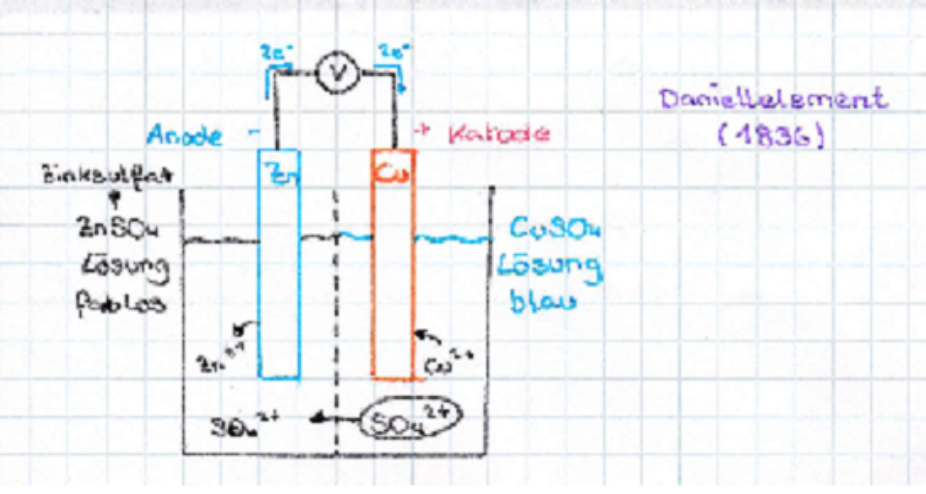 2e⁻
2e⁻
V
Daniellelement
(1836)
Anode -
+ Katode
Zn
Cu
Zinksulfat
ZnSO₄
Lösung
farblos
CuSO₄
Lösung
blau
Zn²⁺
Cu²⁺
SO₄²⁺
SO₄²⁺